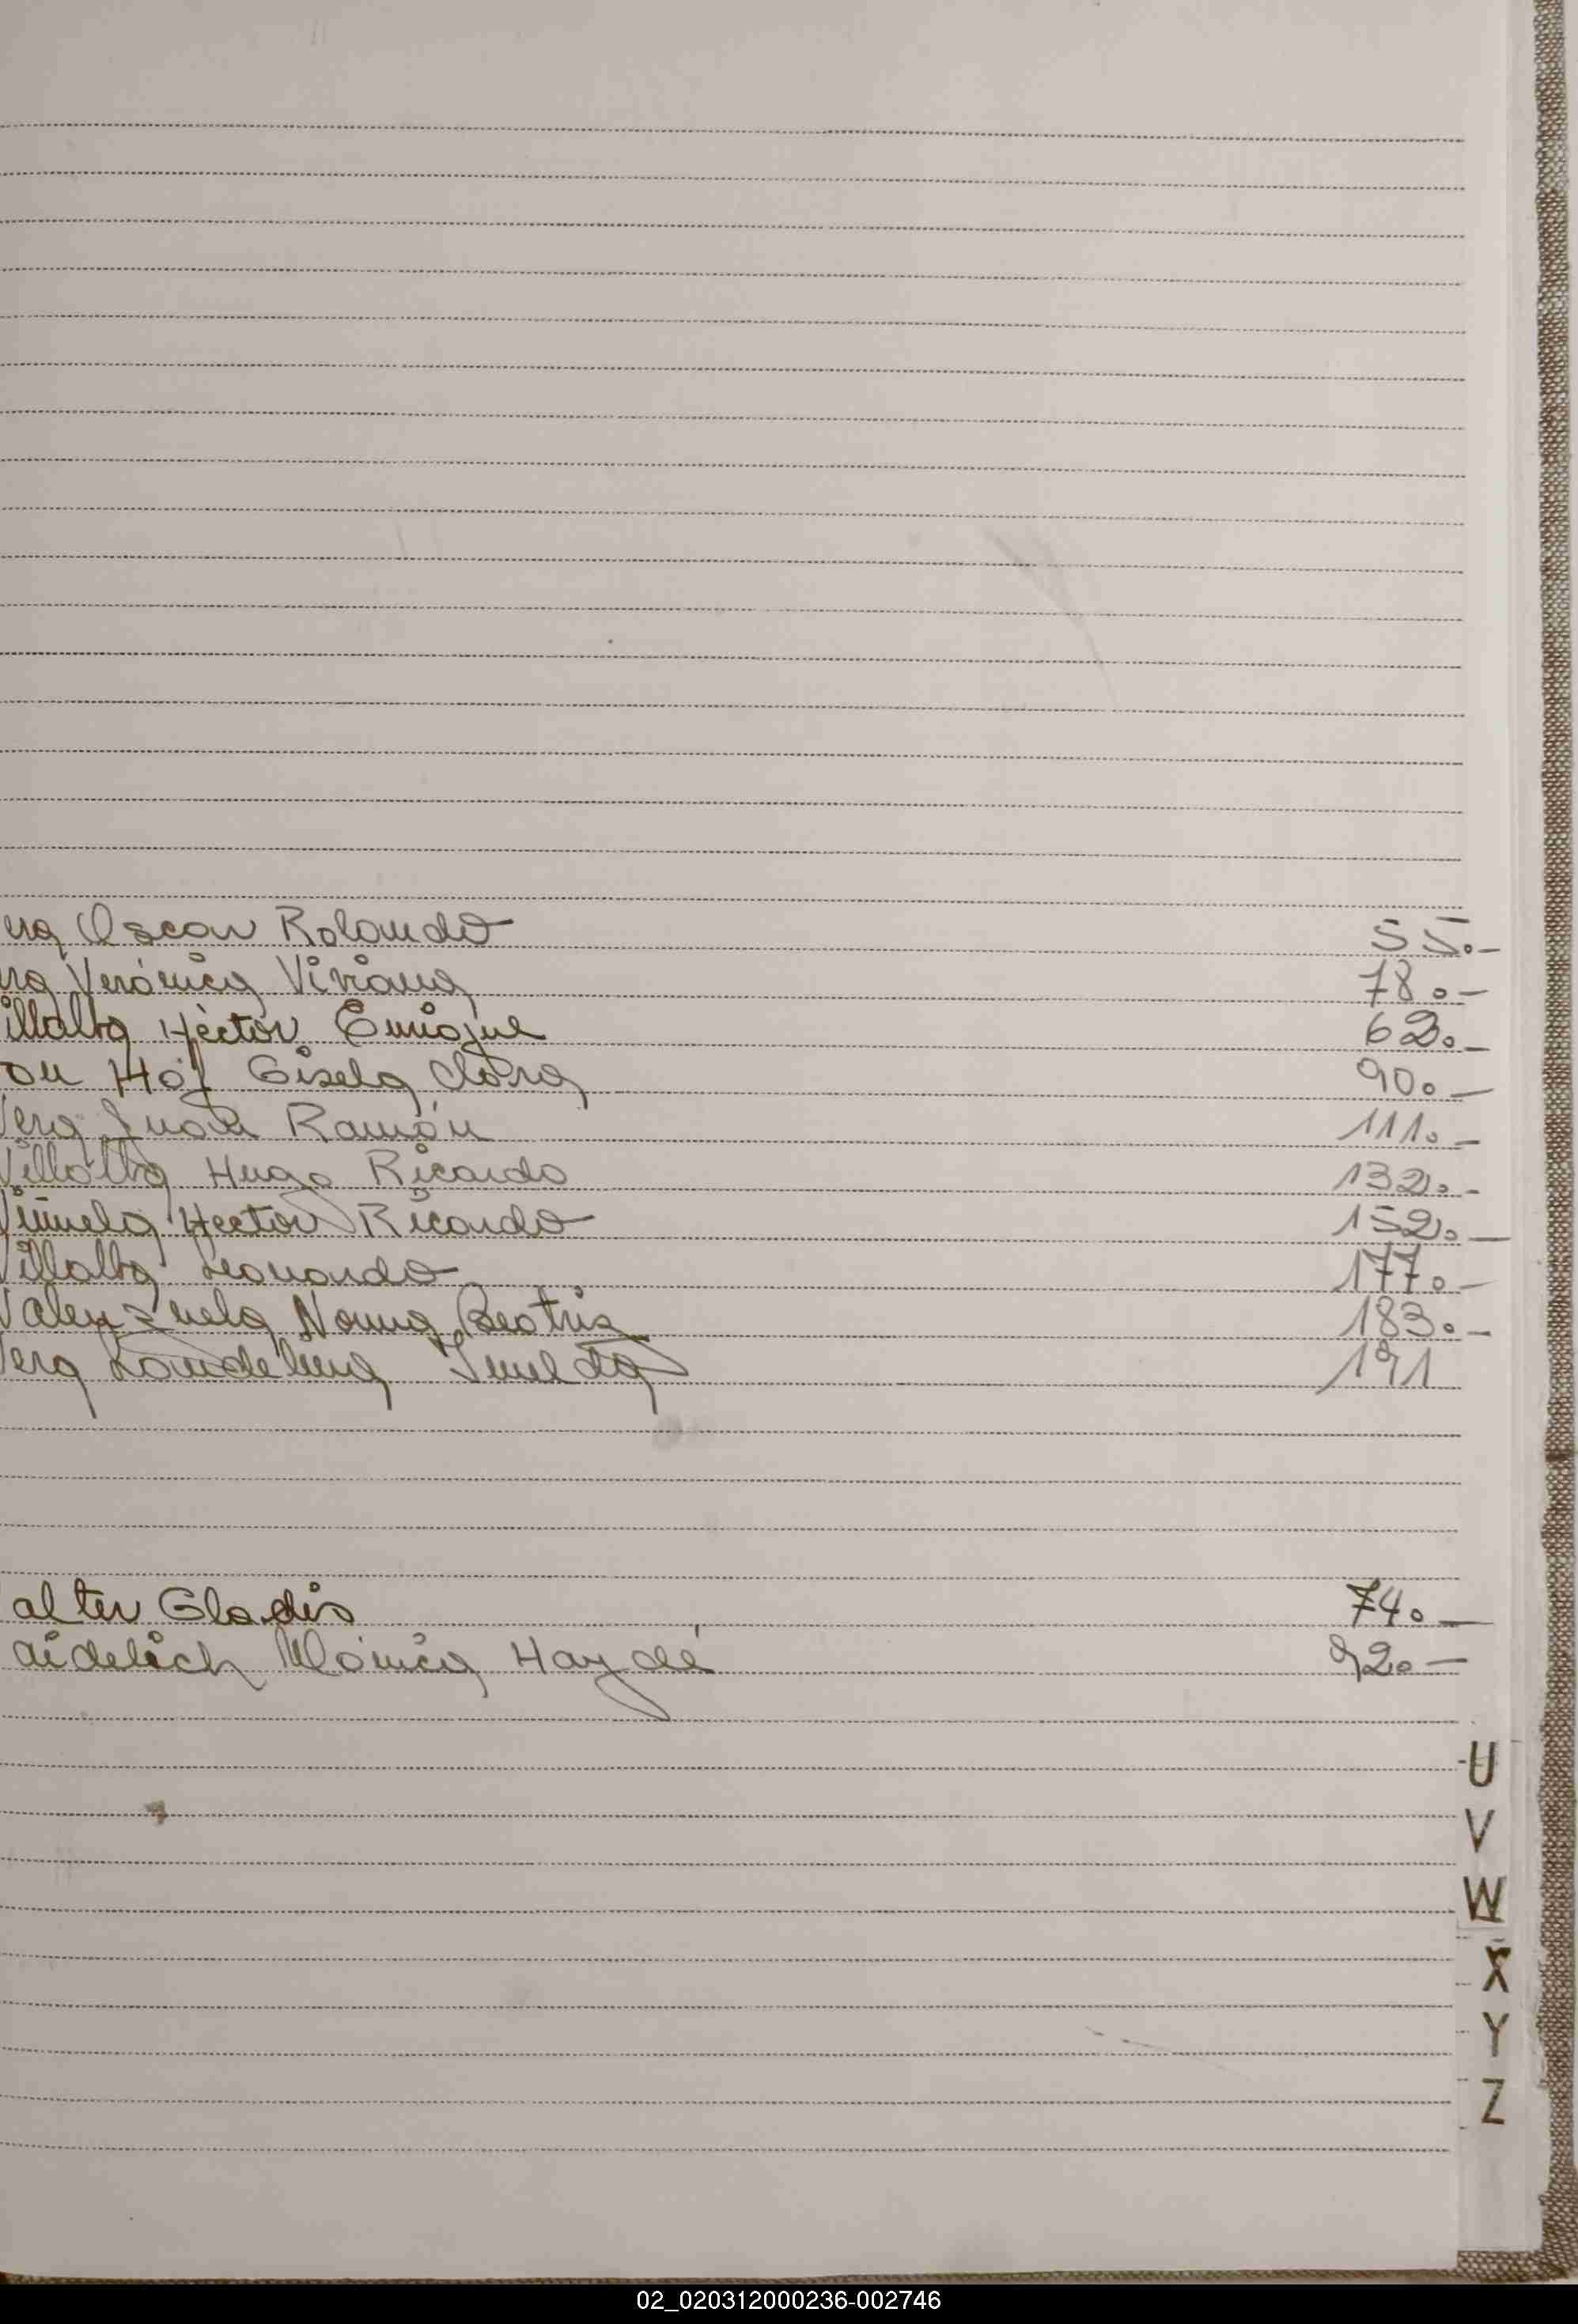 era Oscar Rolando 55.-
ra Verónica Viviana 78.-
illalba Héctor Enrique 62.-
on Hof Gisela Clara 90.-
Vera Juan Ramón 111.-
Villalba Hugo Ricardo 132.-
Hector Ricardo 152.-
Villalba Leonardo 177.-
Valenzuela Norma Beatriz 183.-
Vera Imelda 191
alter Gladis 74.-
aidelich Mónica Haydé 92.-
U
V
W
X
Y
Z
02_020312000236-002746